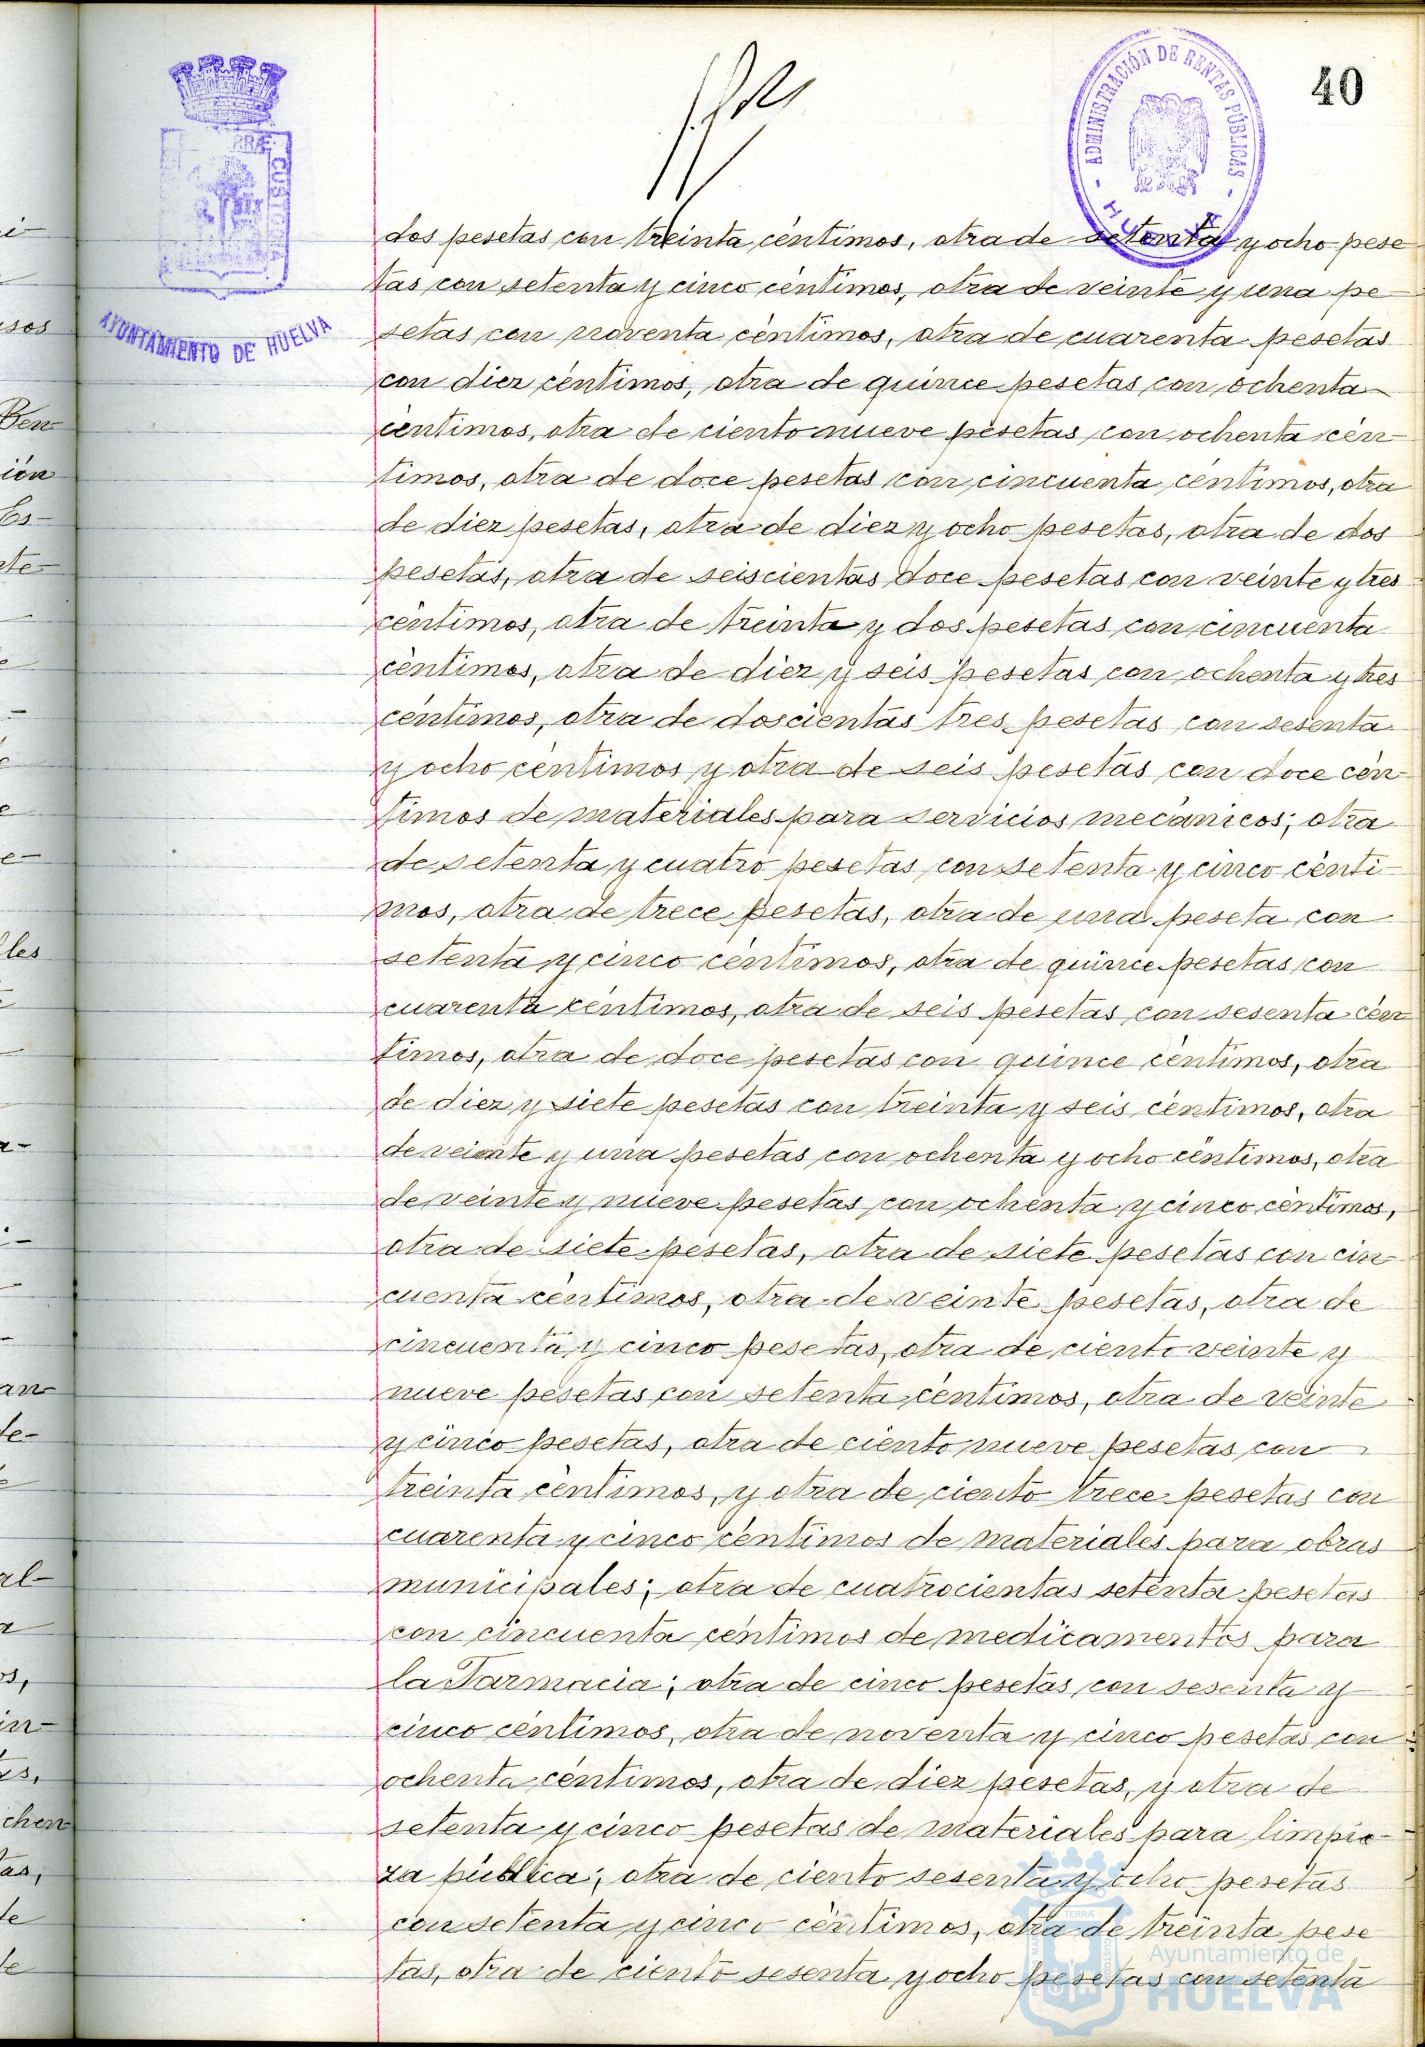 40
ADMINISTRACIÓN DE RENTAS PÚBLICAS
HUELVA
RRÆ CUSTODIA
AYUNTAMIENTO DE HUELVA
dos pesetas con treinta céntimos, otra de setenta y ocho pese
tas con setenta y cinco céntimos, otra de veinte y una pe
setas con noventa céntimos, otra de cuarenta pesetas
con diez céntimos, otra de quince pesetas con ochenta
céntimos, otra de ciento nueve pesetas con ochenta cén-
timos, otra de doce pesetas con cincuenta céntimos, otra
de diez pesetas, otra de diez y ocho pesetas, otra de dos
pesetas, otra de seiscientas doce pesetas con veinte y tres
céntimos, otra de treinta y dos pesetas con cincuenta
céntimos, otra de diez y seis pesetas con ochenta y tres
céntimos, otra de doscientas tres pesetas con sesenta
y ocho céntimos y otra de seis pesetas con doce cén-
timos de materiales para servicios mecánicos; otra
de setenta y cuatro pesetas con setenta y cinco cénti-
mos, otra de trece pesetas, otra de una peseta con
setenta y cinco céntimos, otra de quince pesetas con
cuarenta céntimos, otra de seis pesetas con sesenta cén
timos, otra de doce pesetas con quince céntimos, otra
de diez y siete pesetas con treinta y seis céntimos, otra
de veinte y una pesetas con ochenta y ocho céntimos, otra
de veinte y nueve pesetas con ochenta y cinco céntimos,
otra de siete pesetas, otra de siete pesetas con cin-
cuenta céntimos, otra de veinte pesetas, otra de
cincuenta y cinco pesetas, otra de ciento veinte y
nueve pesetas con setenta céntimos, otra de veinte
y cinco pesetas, otra de ciento nueve pesetas con
treinta céntimos, y otra de ciento trece pesetas con
cuarenta y cinco céntimos de materiales para obras
municipales; otra de cuatrocientas setenta pesetas
con cincuenta céntimos de medicamentos para
la Farmacia; otra de cinco pesetas con sesenta y
cinco céntimos, otra de noventa y cinco pesetas con
ochenta céntimos, otra de diez pesetas, y otra de
setenta y cinco pesetas de materiales para limpie-
za pública; otra de ciento sesenta y ocho pesetas
con setenta y cinco céntimos, otra de treinta pese
tas, otra de ciento sesenta y ocho pesetas con setenta
Ayuntamiento de
HUELVA